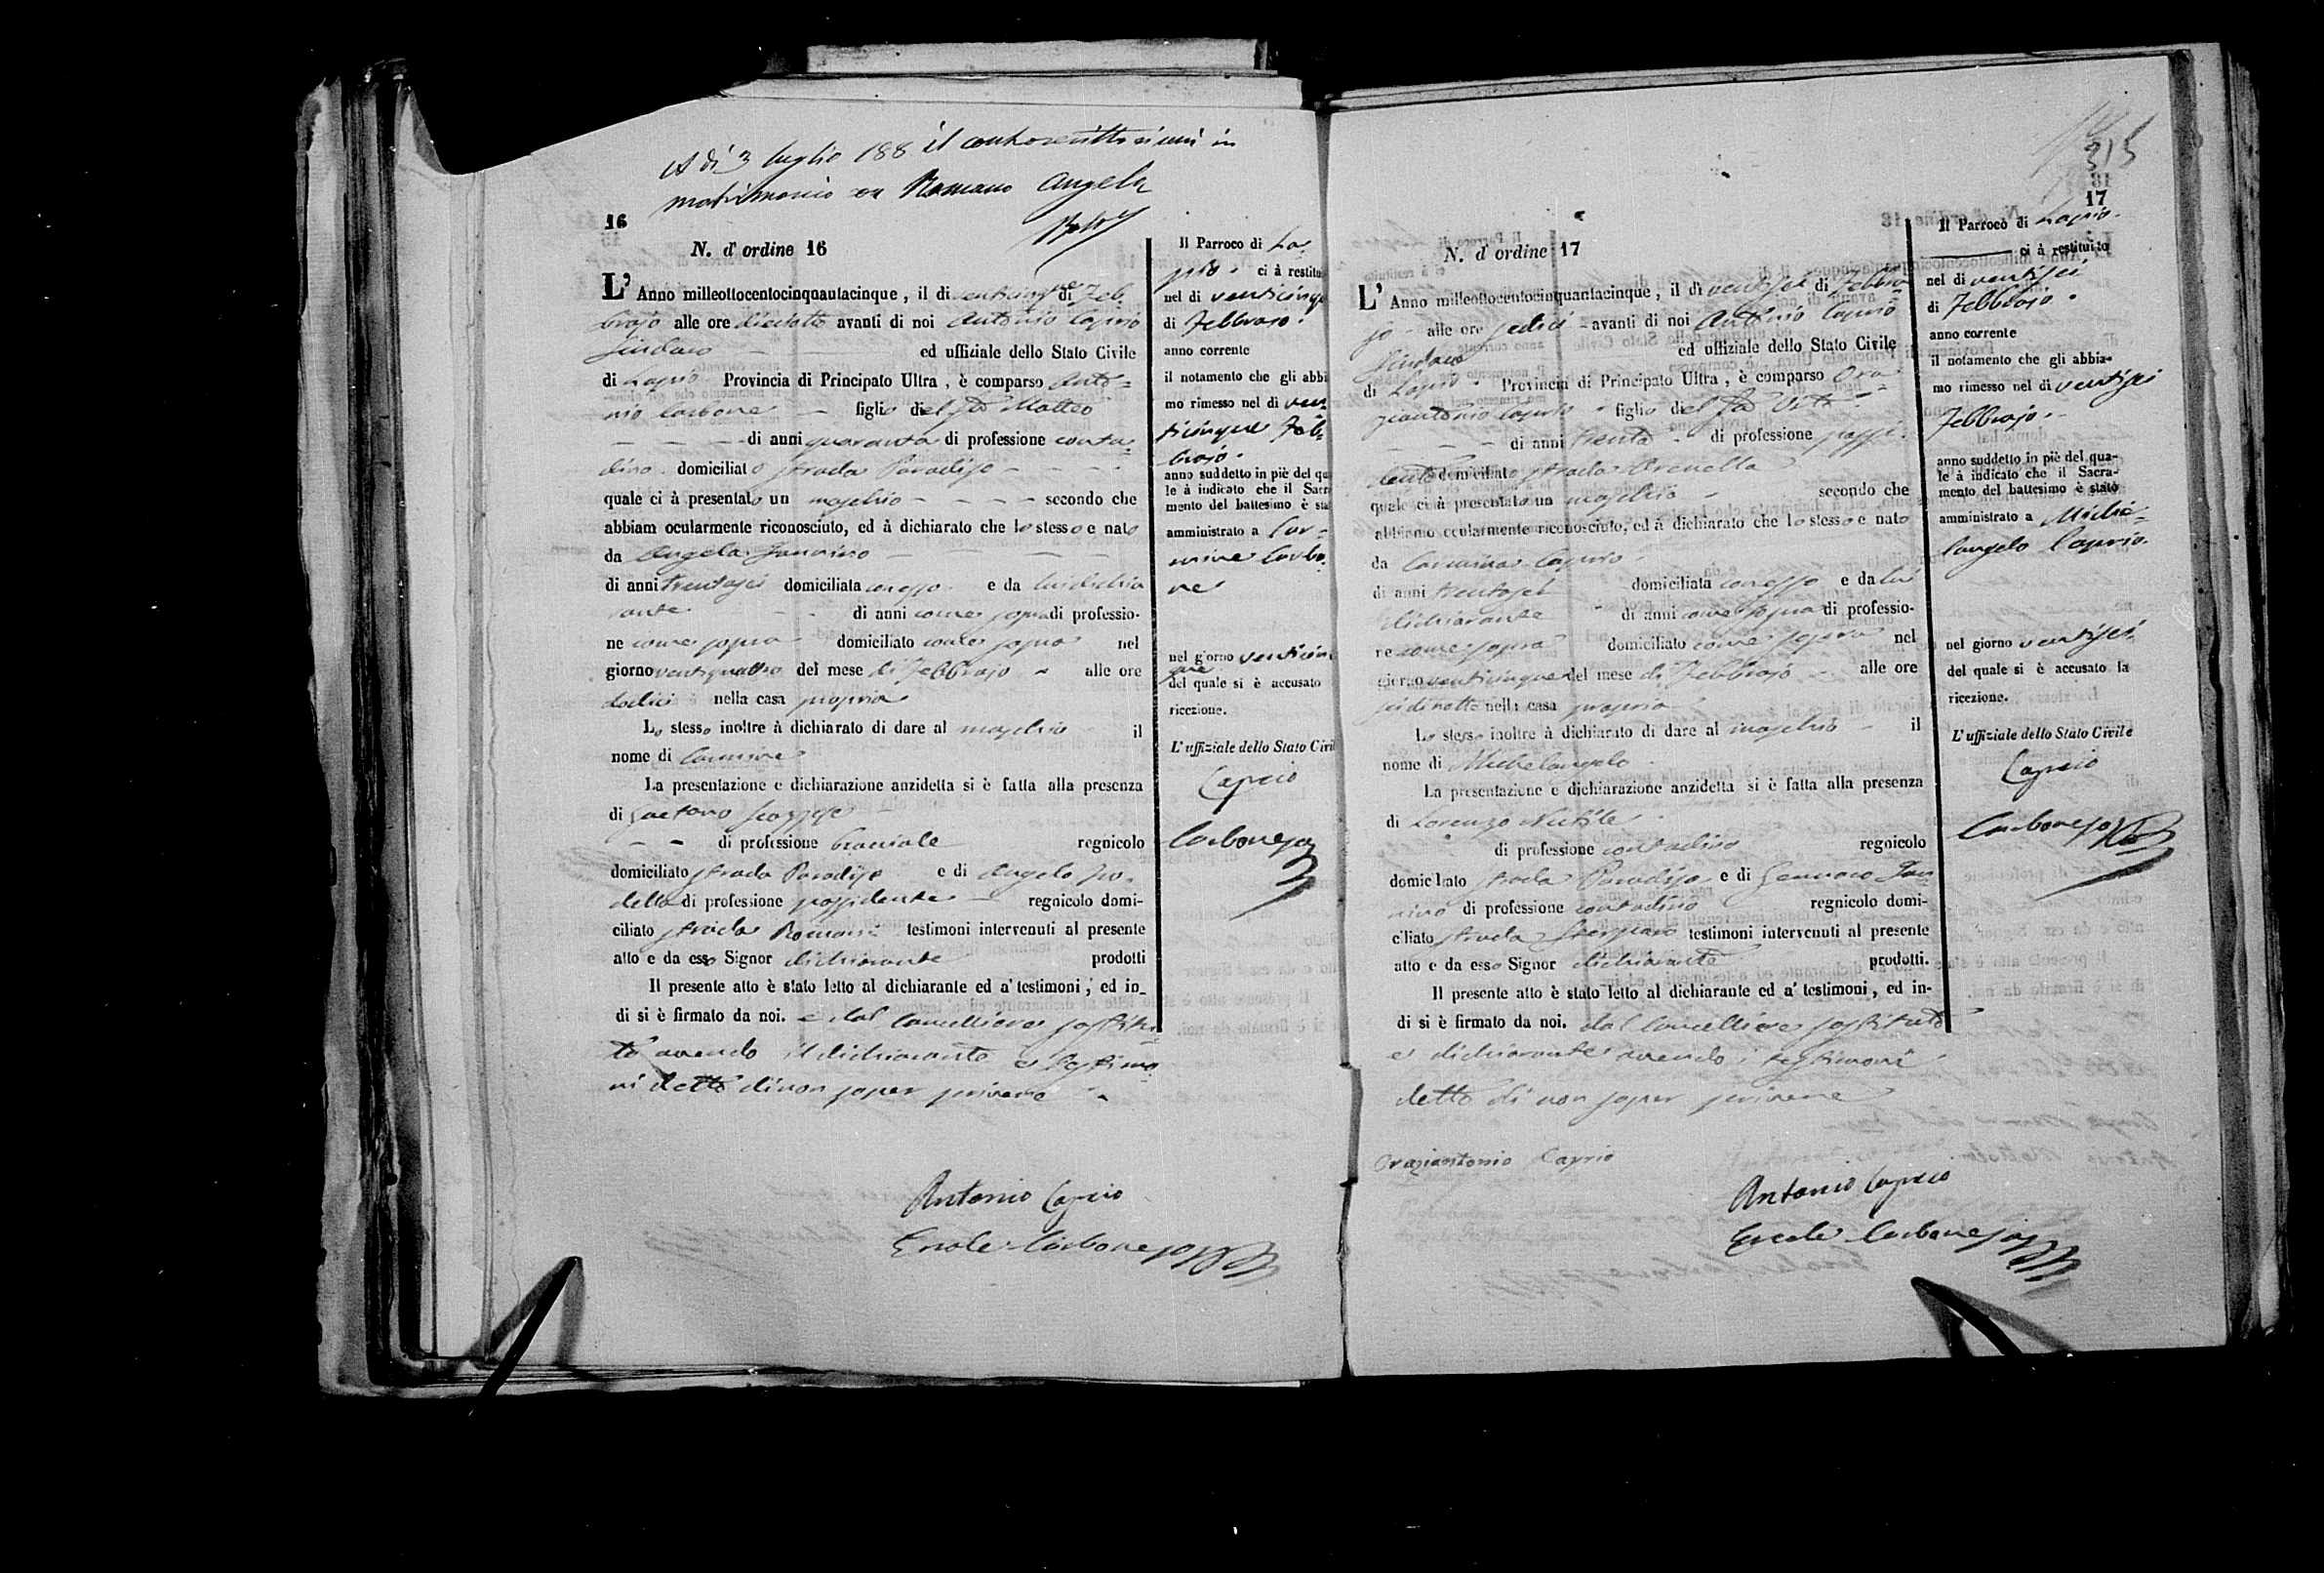 A dì 3 luglio 188 il controscritto si unì in
matrimonio con Romano Angela
16
N. d' ordine 16
L' Anno milleottocentocinquantacinque, il dì venticinque di Feb-
brajo alle ore diciotto avanti di noi Antonio Caprio
Sindaco ed uffiziale dello Stato Civile
di Lapio Provincia di Principato Ultra, è comparso Anto-
nio Carbone figlio del fu Matteo
di anni quaranta di professione conta-
dino domiciliato strada Paradiso
quale ci à presentato un maschio secondo che
abbiam ocularmente riconosciuto, ed à dichiarato che lo stesso e nato
da Angela Jannino
di anni trentasei domiciliata con esso e da lui dichia-
rante di anni come sopra di professio-
ne come sopra domiciliato come sopra nel
giorno ventiquattro del mese di Febbrajo alle ore
dodici nella casa propria
Lo stesso inoltre à dichiarato di dare al maschio il
nome di Carmine
La presentazione e dichiarazione anzidetta si è fatta alla presenza
di Gaetano
di professione bracciale regnicolo
domiciliato strada Paradiso e di Angelo
di professione possidente regnicolo domi-
ciliato strada Romani testimoni intervenuti al presente
atto e da esso Signor dichiarante prodotti
Il presente atto è stato letto al dichiarante ed a' testimoni, ed in-
di si è firmato da noi. e dal Cancelliere sostitu-
to avendo il dichiarante e testimo-
ni detto di non saper scrivere
Antonio Caprio
Ercole Carbone
Il Parroco di La-
pio ci à restitu
nel dì venticinque
di Febbrajo
anno corrente
il notamento che gli abbi
mo rimesso nel dì ven-
ticinque Feb-
brajo
anno suddetto in piè del qu
le à indicato che il Sacr
mento del battesimo è sta
amministrato a Car-
mine Carbo-
ne
nel giorno venticin-
que
del quale si è accusato
ricezione.
L' uffiziale dello Stato Civil
Caprio
Carbone
315
18
17
N. d' ordine 17
L' Anno milleottocentocinquantacinque, il dì ventisei di Febbra-
jo alle ore sedici avanti di noi Antonio Caprio
Sindaco ed uffiziale dello Stato Civile
di Lapio Provincia di Principato Ultra, è comparso Ora-
ziantonio Caprio figlio del fu Vito
di anni trenta di professione possi-
dente domiciliato strada Arenella
quale ci à presentato un maschio secondo che
abbiamo ocularmente riconosciuto, ed à dichiarato che lo stesso e nato
da Carmina Caprio
di anni trentasei domiciliata con esso e da lui
dichiarante di anni come sopra di professio-
ne come sopra domiciliato come sopra nel
giorno venticinque del mese di Febbrajo alle ore
sei di notte nella casa propria
Lo stesso inoltre à dichiarato di dare al maschio il
nome di Michelangelo
La presentazione e dichiarazione anzidetta si è fatta alla presenza
di Lorenzo
di professione contadino regnicolo
domiciliato strada Paradiso e di Gennaro Jan-
nino di professione contadino regnicolo domi-
ciliato strada testimoni intervenuti al presente
atto e da esso Signor dichiarante prodotti.
Il presente atto è stato letto al dichiarante ed a' testimoni, ed in-
di si è firmato da noi. dal Cancelliere sostituto
e dichiarante avendo i testimoni
detto di non saper scrivere
Oraziantonio Caprio
Antonio Caprio
Ercole Carbone
Il Parroco di Lapio
ci à restituito
nel dì ventisei
di Febbrajo
anno corrente
il notamento che gli abbia-
mo rimesso nel dì ventisei
Febbrajo
anno suddetto in piè del qua-
le à indicato che il Sacra-
mento del battesimo è stato
amministrato a Miche-
langelo Caprio
nel giorno ventisei
del quale si è accusato la
ricezione.
L' uffiziale dello Stato Civile
Caprio
Carbone